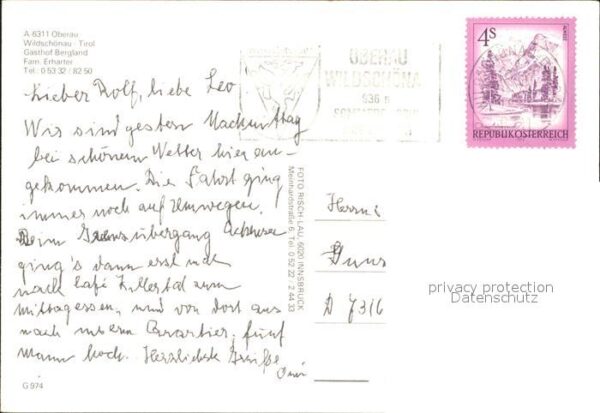 A 6311 Oberau
Wildschönau · Tirol
Gasthof Bergland
Fam. Erharter
Tel.: 0 53 32 / 82 50
Lieber Rolf, liebe Leo
Wir sind gestern Nachmittag
bei schönem Wetter hier an-
gekommen. Die Fahrt ging
immer noch auf Umwegen.
Beim Grenzübergang Achensee
ging's dann erst mal
nach Café Zillertal zum
Mittagessen, und von dort aus
nach unserm Quartier. fünf
Mann hoch. Herzlichste Grüße
G 974
FOTO RISCH-LAU, 6020 INNSBRUCK
Meinhardstraße 6, Tel. 0 52 22 2 44 33
OBERAU
WILDSCHÖNAU
936 m
4S
ALMSEE
REPUBLIK ÖSTERREICH
D 7316
privacy protection
Datenschutz